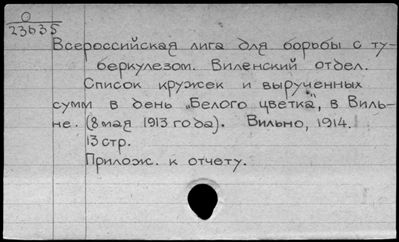 О
23635
Всероссийская лига для борьбы с ту-
беркулезом. Виленский отдел.
Список кружек и вырученных
сумм в день „Белого цветка", в Виль-
не. (8 мая 1913 года). Вильно, 1914.
13 стр.
Прилож. к отчету.